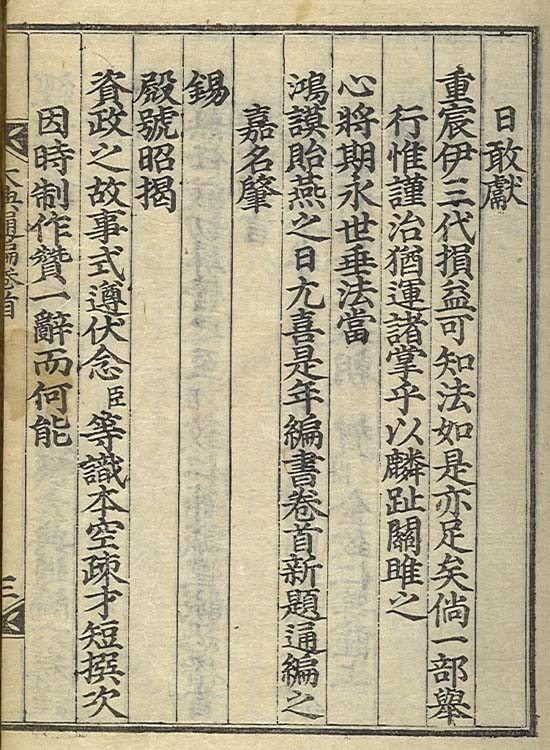 日敢獻
重宸伊三代損益可知法如是亦足矣倘一部舉
行惟謹治猶運諸掌乎以麟趾關雎之
心將期永世垂法當
鴻謨貽燕之日尤喜是年編書卷首新題通編之
嘉名肇
錫
殿號昭揭
資政之故事式遵伏念臣等識本空疎才短撰次
因時制作贊一辭而何能
大典通編卷首
三